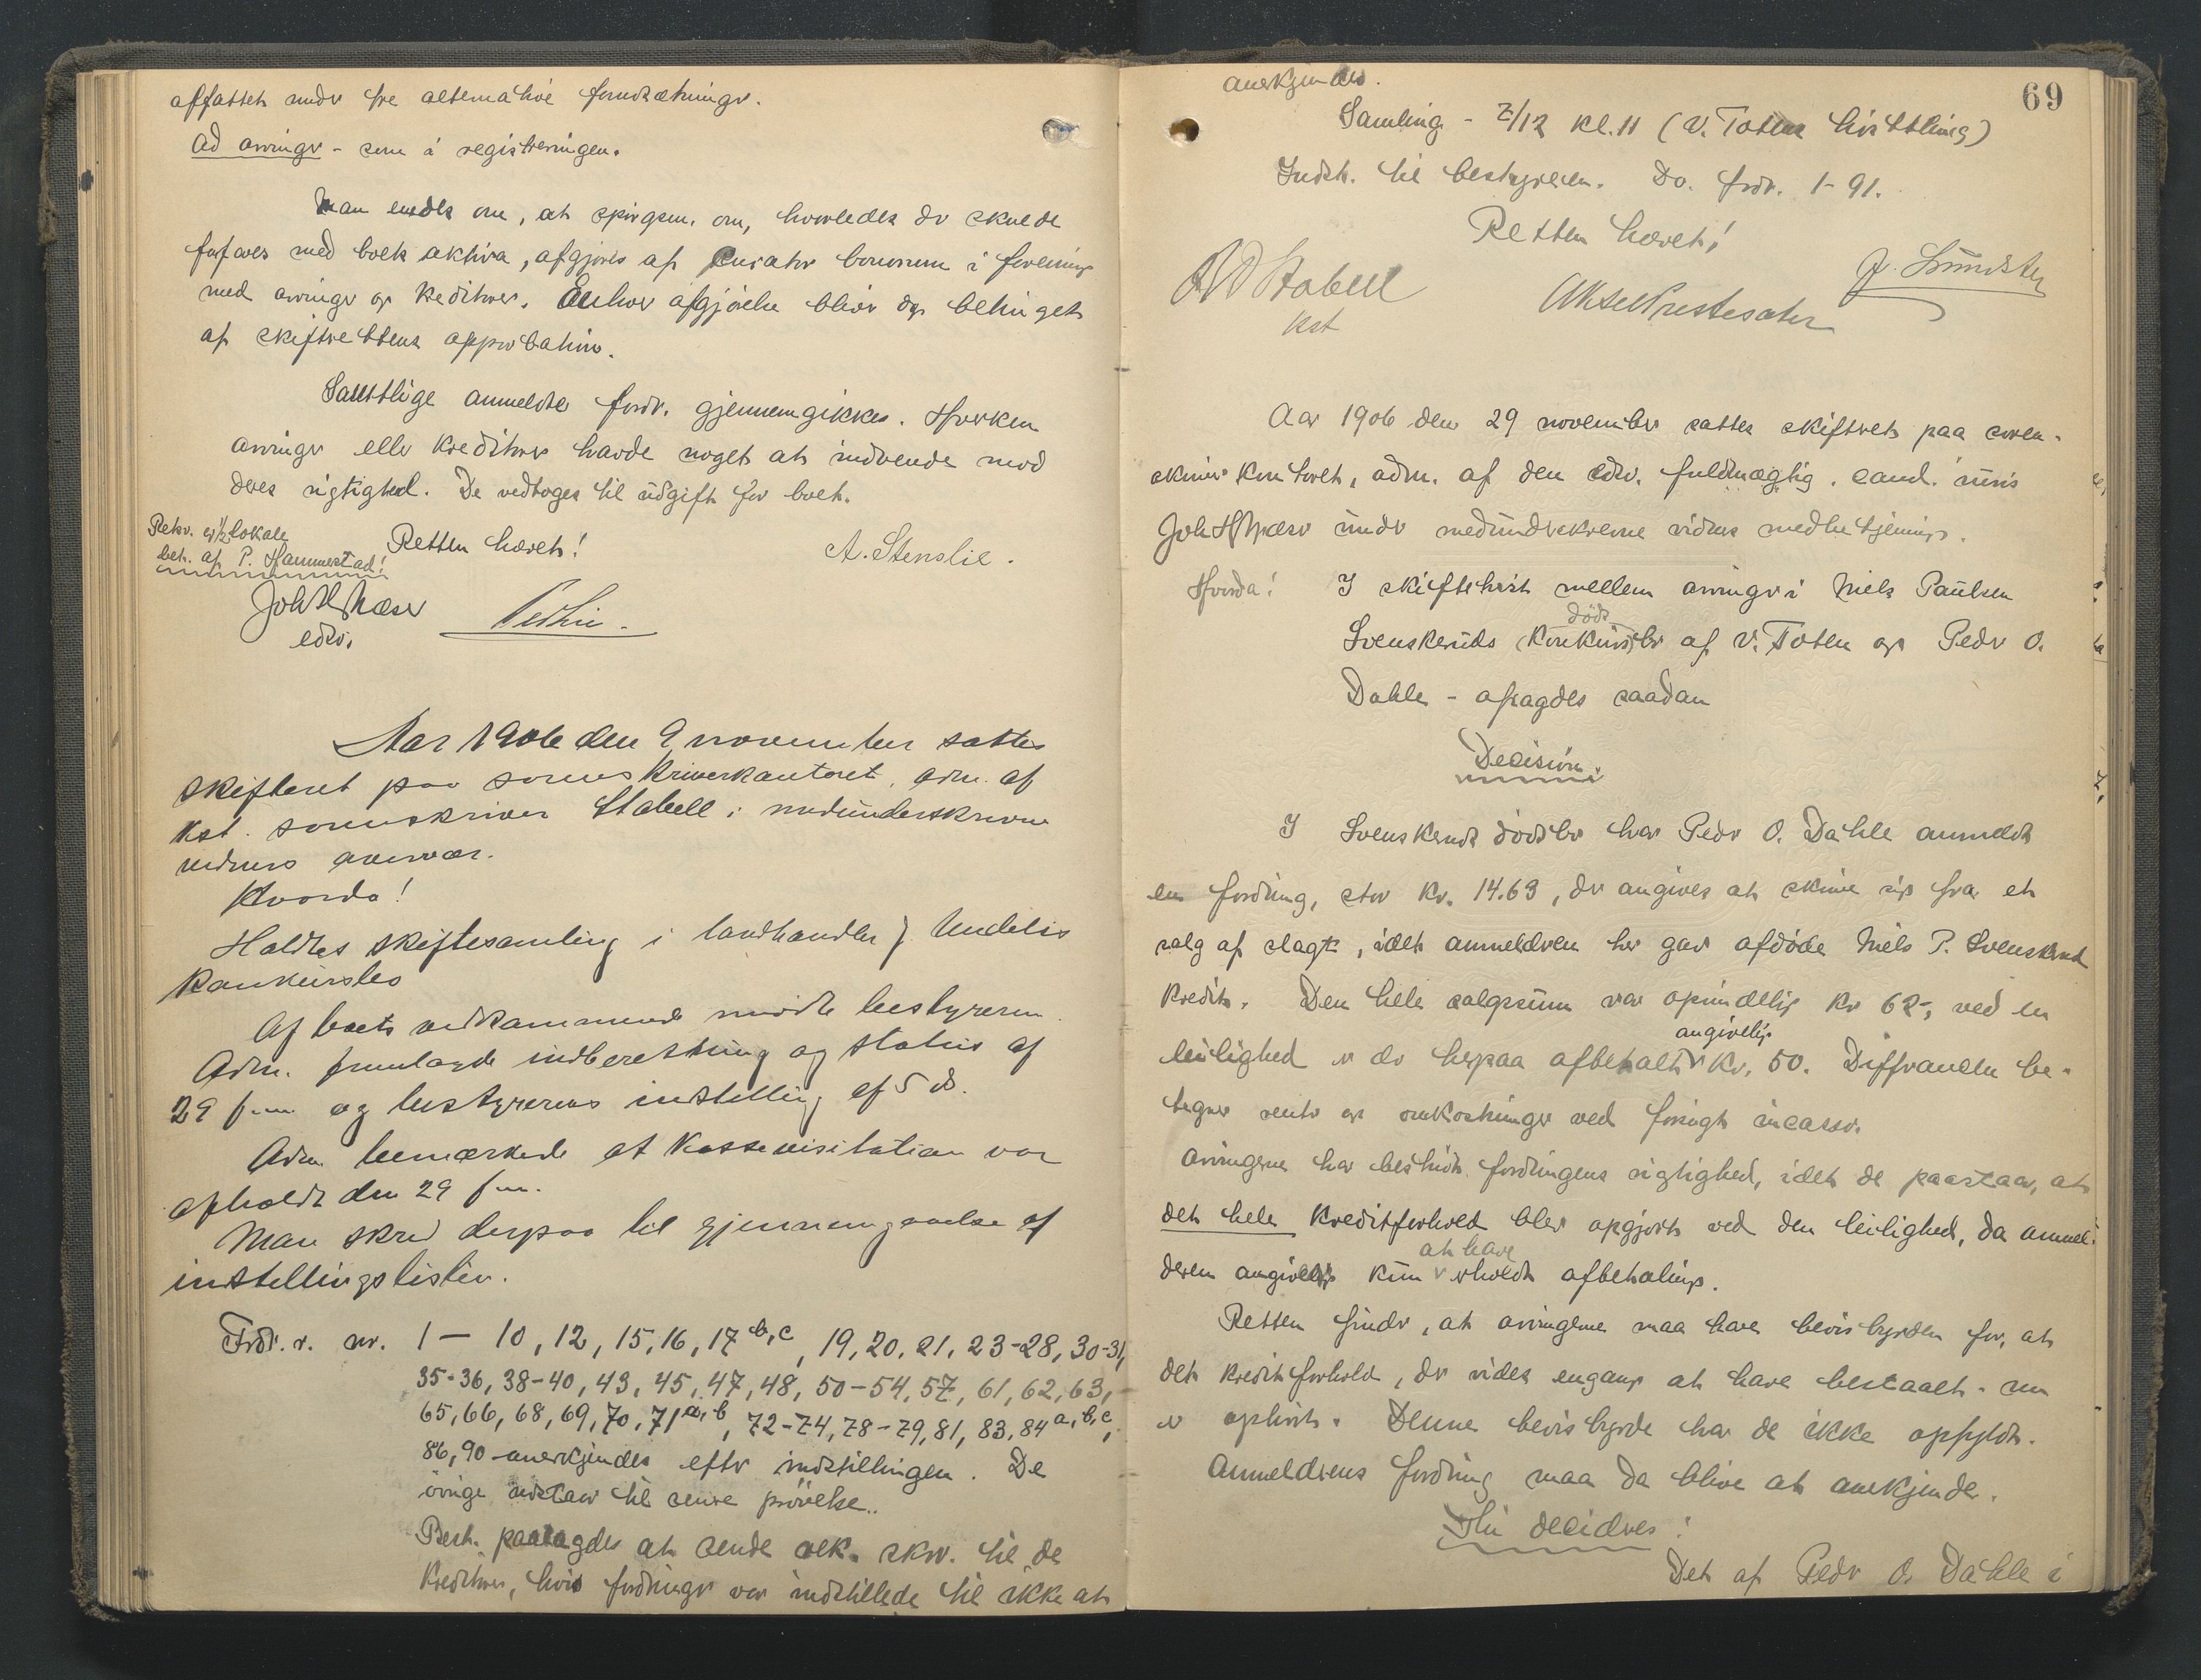 affattet under fre alternative forudsætninger.
Ad arvinger - som i registreringen.
Man enedes om, at spørgsm. om, hvorledes der skulde
forfares med boets aktiva, afgjøres af Curator bonorum i forening
med arvinger og kreditorer. Enhver afgjørelse bliver dog betinget
af skifterettens approbation.
Samtlige anmeldte fordr. gjennemgikkes. Hverken
arvinger eller kreditorer havde noget at indvende mod
deres rigtighed. De vedtoges til udgift for boet.
Rekv. og lokale
bet. af P. Hammerstad!
Retten hævet!
A. Stenslie.
Joh H Næser
edsv.
Aar 1906 den 9 november sattes
skifteret paa sorenskriverkontoret, adm. af
kst. sorenskriver Stabell i medunderskrevne
vidners overvær.
Hvorda!
Holdtes skiftesamling i landhandler J. Undelis
konkursbo
Af boets vedkommende mødte bestyreren.
Adm. fremlagde indberetning og status af
29 f.m. og bestyrerens indstilling af 5 ds.
Adm. bemærkede at kassevisitation var
afholdt den 29 f.m.
Man skred derpaa til gjennemgaaelse af
indstillingslisten.
Fordr. nr. 1 - 10, 12, 15, 16, 17 b,c, 19, 20, 21, 23-28, 30-31,
35-36, 38-40, 43, 45, 47, 48, 50-54, 57, 61, 62, 63,
65, 66, 68, 69, 70, 71 a,b, 72-74, 78-79, 81, 83, 84 a,b,c,
86, 90 anerkjendes efter indstillingen. De
øvrige udstaar til senere prøvelse.
Best. paalagdes at sende rek. skr. til de
kreditorer, hvis fordringer var indstillede til ikke at
69
anerkjendes.
Samling - 7/12 kl. 11 (V. Toten
Indst. til bestyrelsen. Do. fordr. 1-91.
Retten hævet!
Stabell
kst
Aksel Prestesæter
J. Lundsten
Aar 1906 den 29 november sattes skifteret paa soren-
skriverkontoret, adm. af den edsv. fuldmægtig, cand. juris
Joh H Næser under medunderskrevne vidners medbetjening.
Hvorda!
I skiftetvist mellem arvinger i Niels Paulsen
Svenskeruds konkursbo
døds
af V. Toten og Peder O.
Dahle - afsagdes saadan
Decision:
I Svenskeruds dødsbo har Peder O. Dahle anmeldt
en fordring, stor kr. 14.63, der angives at skrive sig fra et
salg af slagt, idet anmelderen her gav afdøde Niels P. Svenskerud
kredit. Den hele salgssum var oprindelig kr 62-, ved en
leilighed er der herpaa afbetalt
angivelig
kr. 50. Differancen be-
tegner renter og omkostninger ved forsøgt incasso.
Arvingerne har bestridt fordringens rigtighed, idet de paastaar, at
det hele kreditforhold blev opgjort ved den leilighed, da anmel-
deren angivelig kun
at have
erholdt afbetaling.
Retten finder, at arvingerne maa have bevisbyrden for, at
det kreditforhold, der vides engang at have bestaaet - nu
er ophørt. Denne bevisbyrde har de ikke opfyldt.
Anmelderens fordring maa da blive at anerkjende.
Thi decideres:
Det af Peder O. Dahle i